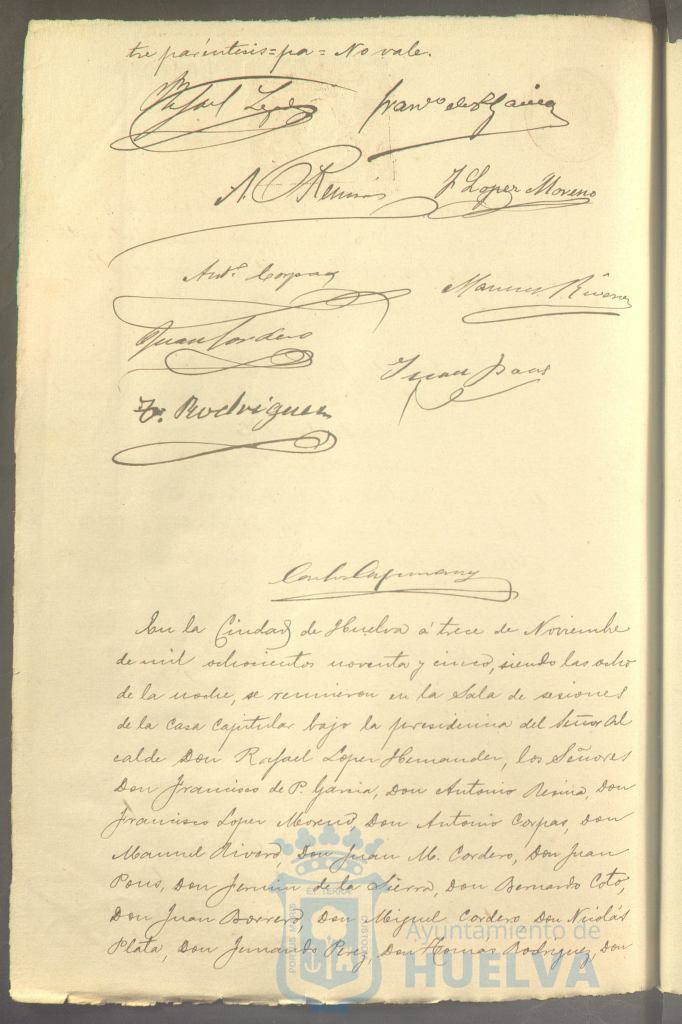 tre paréntesis=pa=No vale.
Rafael López
Franco de P. García
A. Resina
F Lopez Moreno
Anto. Corpas
Manuel Rivero
Juan Cordero
Juan Pons
T. Rodriguez
En la Ciudad de Huelva á trece de Noviembre
de mil ochocientos noventa y cinco, siendo las ocho
de la noche, se reunieron en la Sala de sesiones
de la Casa Capitular bajo la presidencia del Señor Al
calde Don Rafael Lopez Hernandez, los Señores
Don Francisco de P. Garcia, Don Antonio Resina, Don
Francisco Lopez Moreno, Don Antonio Corpas, Don
Manuel Rivero, Don Juan M. Cordero, Don Juan
Pons, Don Fermin de la Sierra, Don Bernardo Coto,
Don Juan Borrero, Don Miguel Cordero, Don Nicolás
Plata, Don Fernando Perez, Don Tomas Rodriguez, Don
Ayuntamiento de
HUELVA